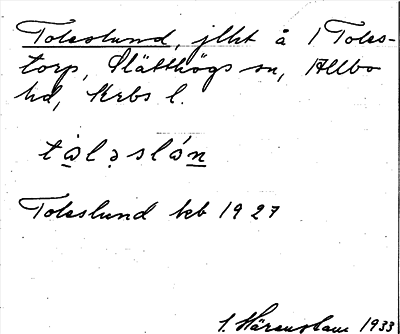 Toleslund, jlht å 1 Toles-
torp, Slätthögs sn, Allbo
hd, Krbs l.
tàləslón
Toleslund kb 1927
S. Härenstam 1933